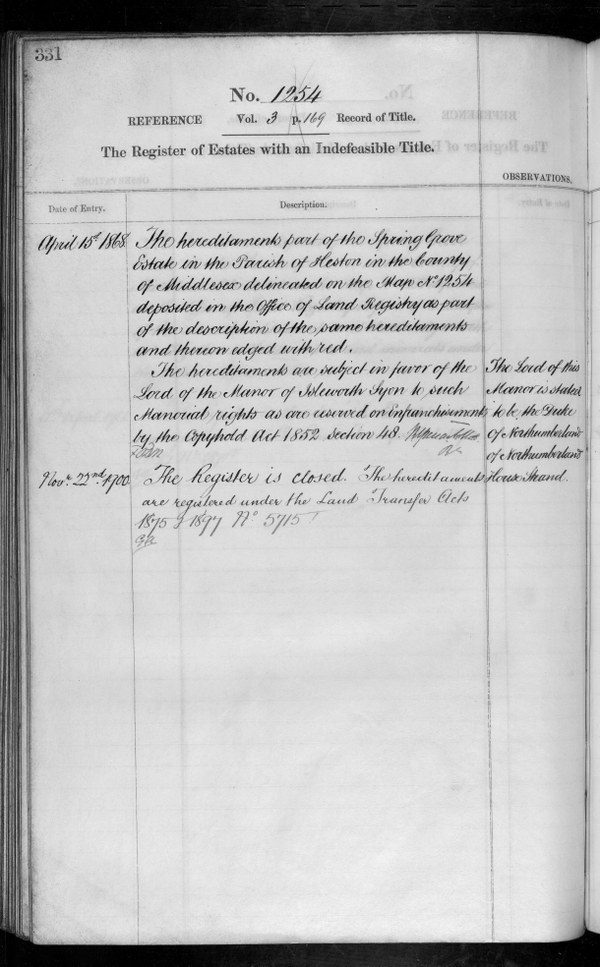 331
No. 1254
REFERENCE Vol. 3 p. 169 Record of Title.
The Register of Estates with an Indefeasible Title.
OBSERVATIONS.
Date of Entry.
Description.
April 15th 1868.
The hereditaments part of the Spring Grove
Estate in the Parish of Heston in the County
of Middlesex delineated on the Map No 1254
deposited in the Office of Land Registry as part
of the description of the same hereditaments
and thereon edged with red.
The hereditaments are subject in favor of the
Lord of the Manor of Isleworth Syon to such
Manorial rights as are reserved on Enfranchisement
by the Copyhold Act 1852 Section 48.
The Lord of this
Manor is stated
to be the Duke
of Northumberland
of Northumberland
House Strand.
Novr. 22nd 1900
The Register is closed. The hereditaments
are registered under the Land Transfer Acts
1875 & 1897 No 5715